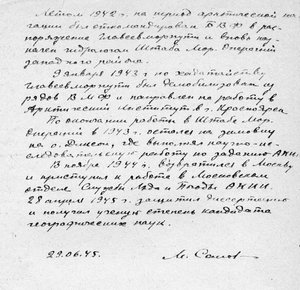 Летом 1942 г. на период арктической на-
гации был откомандирован Б.В.Ф. в рас-
поряжение Главсевморпути и вновь наз-
начен гидрологом Штаба Мор. Операций
западного района.
9 января 1943 г. по ходатайству
Главсевморпути был демобилизован из
рядов В.М.Ф и направлен на работу в
Арктический институт в г. Красноярск.
По окончании работы в Штабе Мор.
Операций в 1943 г. остался на зимовку
на о. Диксон, где выполнял научно-ис-
следовательскую работу по заданию АНИИ.
В ноябре 1944 г. возвратился в Москву
и приступил к работе в Московском
отделе Службы Льда и Погоды АНИИ.
28 апреля 1945 г. защитил диссертацию
и получил ученую степень кандидата
географических наук.
29.06.45. М. Сомов